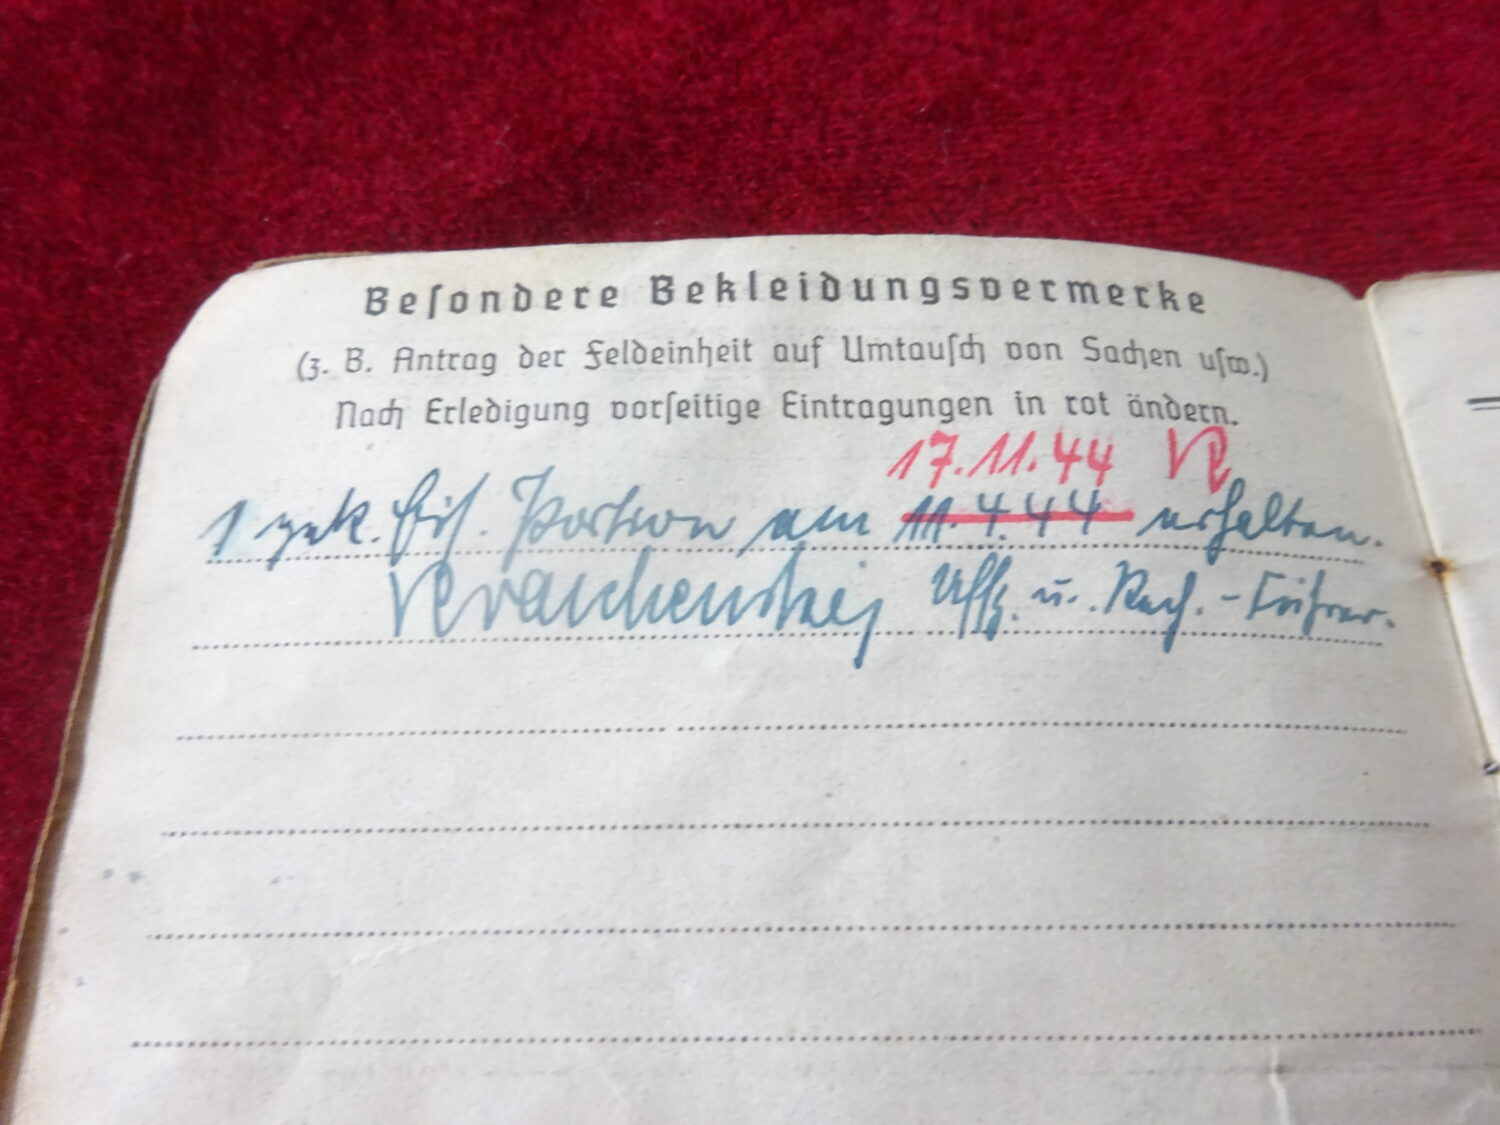 Besondere Bekleidungsvermerke
(z. B. Antrag der Feldeinheit auf Umtausch von Sachen usw.)
Nach Erledigung vorseitige Eintragungen in rot ändern.
17.11.44
1 gek. Eis. Portion am 11.4.44 erhalten.
Uffz. u. Rech.-Führer.